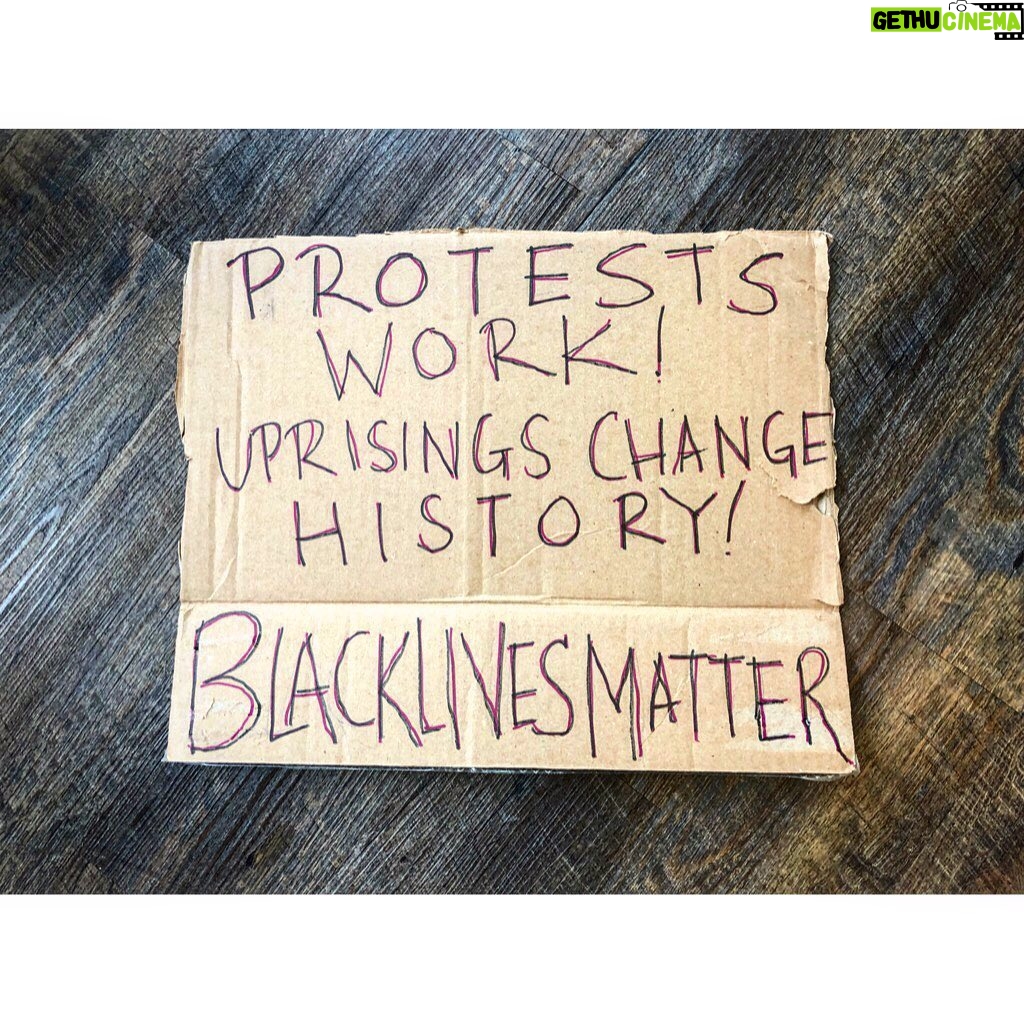 GETHUCINEMA
PROTESTS
WORK!
UPRISINGS CHANGE
HISTORY!
BLACKLIVESMATTER